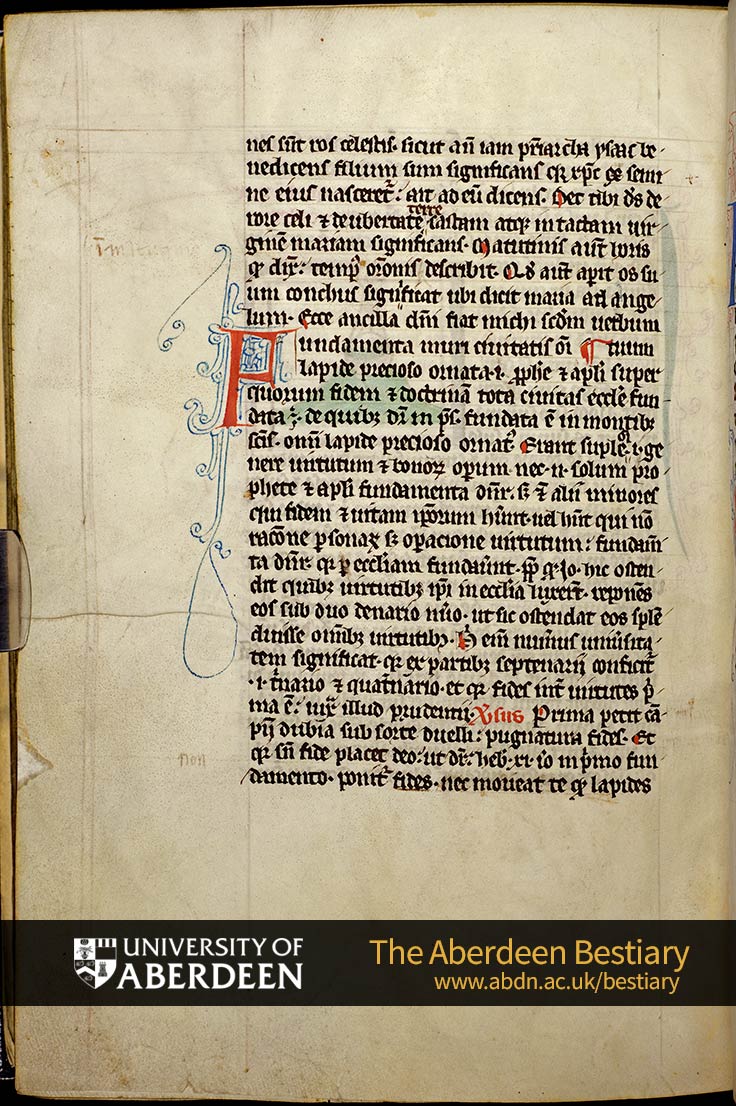 nes sūt ros celestis. sicut aū iam pr̄iarcha ysaac be
nedicens filium suum significans qr xp̄c ex semi
ne eius nasceret᷑. ait ad eū dicens. Det tibi d̄s de
rore celi ⁊ de ubertate terre castam atq; intactam uir
ginē mariam significans. Matutinis aut̄ horis
q̄ dix᷑. temp᷒ orōnis describit. Qd aut̄ aperit os su
um conchus significat ubi dicit maria ad ange
lum. Ecce ancilla dn̄i fiat michi scdm uerbum
Fundamenta muri ciuitatis om̄i tuum
lapide precioso ornata .i. ꝓphe ⁊ apl̄i super
quorum fidem ⁊ doctrinā tota ciuitas eccl̄e fun
data ē. de quib; dr̄ in ps̄. fundata ē in montib;
sc̄is. omī lapide precioso ornat᷒. Erant suple .i. ge
nere uirtutum ⁊ bonoꝝ operum. nec .n. solum pro
phete ⁊ apl̄i fundamenta dn̄r. s; ⁊ alii minores
qui fidem ⁊ uitam ip̄orum hn̄t. uel hn̄t qui nō
racōne personaꝝ s; operacione uirtutum. fundam̄
ta dn̄r. qr per eccl̄iam fundauer̄t. ꝓp̄ q̄ Jo. hic osten
dit quib; uirtutib; ip̄i in eccl̄ia luxer̄t. reponēs
eos sub duo denario nūo. ut sic ostendat eos splē
duisse omīb; uirtutib;. H eim̄ num̄us uniu̓sita
tem significat. qr ex partib; septenarij conficit᷑
.i. t̓nario ⁊ quat̓nario. et qr fides int̓ uirtutes p̓
ma ē. iux̄ illud prudentij. V̓sus Prima petit cā
pū dubia sub sorte duelli. pugnatura fides. Et
qr sn̄ fide placet deo. ut dr̄. heb̓. xi. io in p̓mo fun
damento. ponit᷑ fides. nec moueat te q̄ lapides
non
UNIVERSITY OF
ABERDEEN
The Aberdeen Bestiary
www.abdn.ac.uk/bestiary